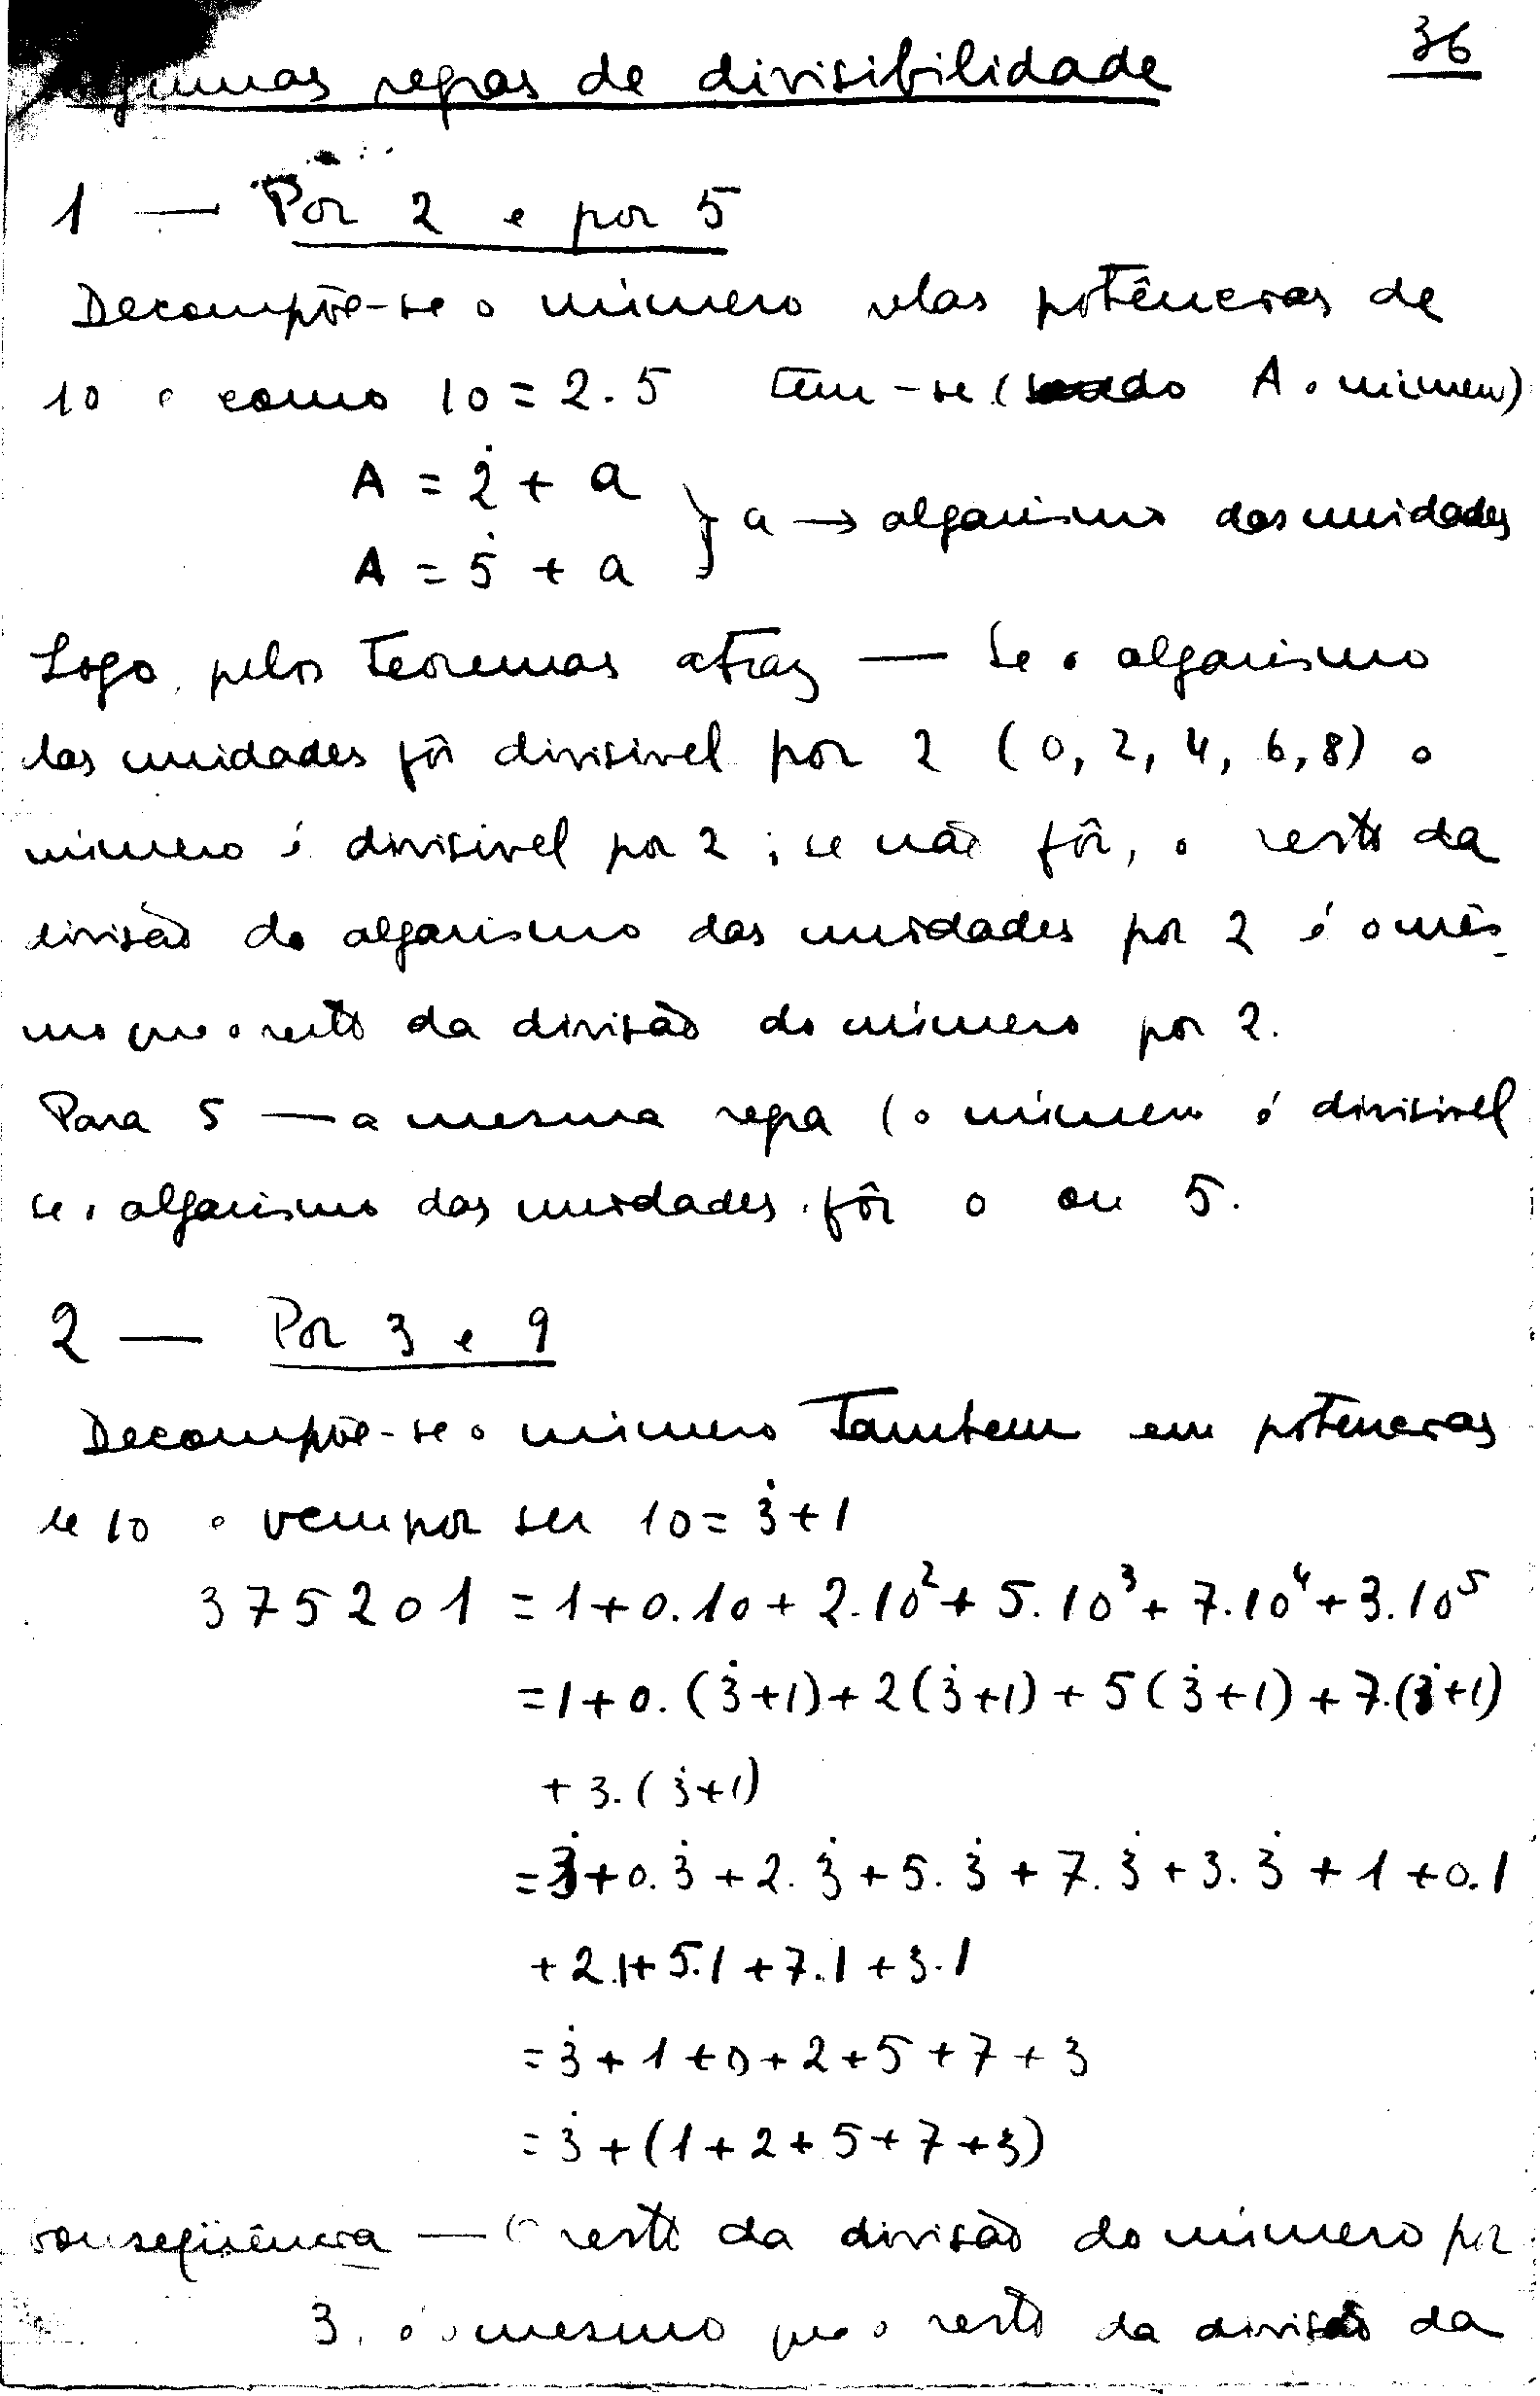 36
Algumas regras de divisibilidade
1 — Por 2 e por 5
Decompõe-se o número pelas potências de
10 e como 10 = 2.5 tem-se (sendo A o número)
A = 2̇ + a
A = 5̇ + a } a → algarismo das unidades
Logo, pelos teoremas atraz — Se o algarismo
das unidades fôr divisivel por 2 (0, 2, 4, 6, 8) o
número é divisivel por 2 ; se não fôr, o resto da
divisão do algarismo das unidades por 2 é o mês
mo que o resto da divisão do número por 2.
Para 5 — a mesma regra (o número é divisivel
se o algarismo das unidades fôr 0 ou 5.
2 — Por 3 e 9
Decompõe-se o número Tambem em potencias
de 10 e vem por ser 10 = 3̇ + 1
375201 = 1 + 0.10 + 2.10² + 5.10³ + 7.10⁴ + 3.10⁵
= 1 + 0.(3̇+1) + 2(3̇+1) + 5(3̇+1) + 7.(3̇+1)
+ 3.(3̇+1)
= 3̇ + 0.3̇ + 2.3̇ + 5.3̇ + 7.3̇ + 3.3̇ + 1 + 0.1
+ 2.1 + 5.1 + 7.1 + 3.1
= 3̇ + 1 + 0 + 2 + 5 + 7 + 3
= 3̇ + (1 + 2 + 5 + 7 + 3)
conseqüência — O resto da divisão do número por
3, é o mesmo que o resto da divisão da